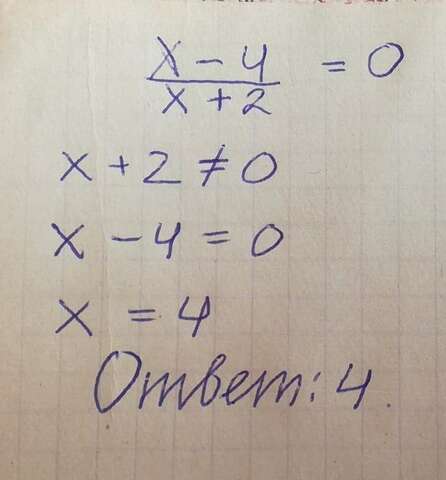 x - 4
x + 2 = 0
x + 2 ≠ 0
x - 4 = 0
x = 4
Ответ: 4.